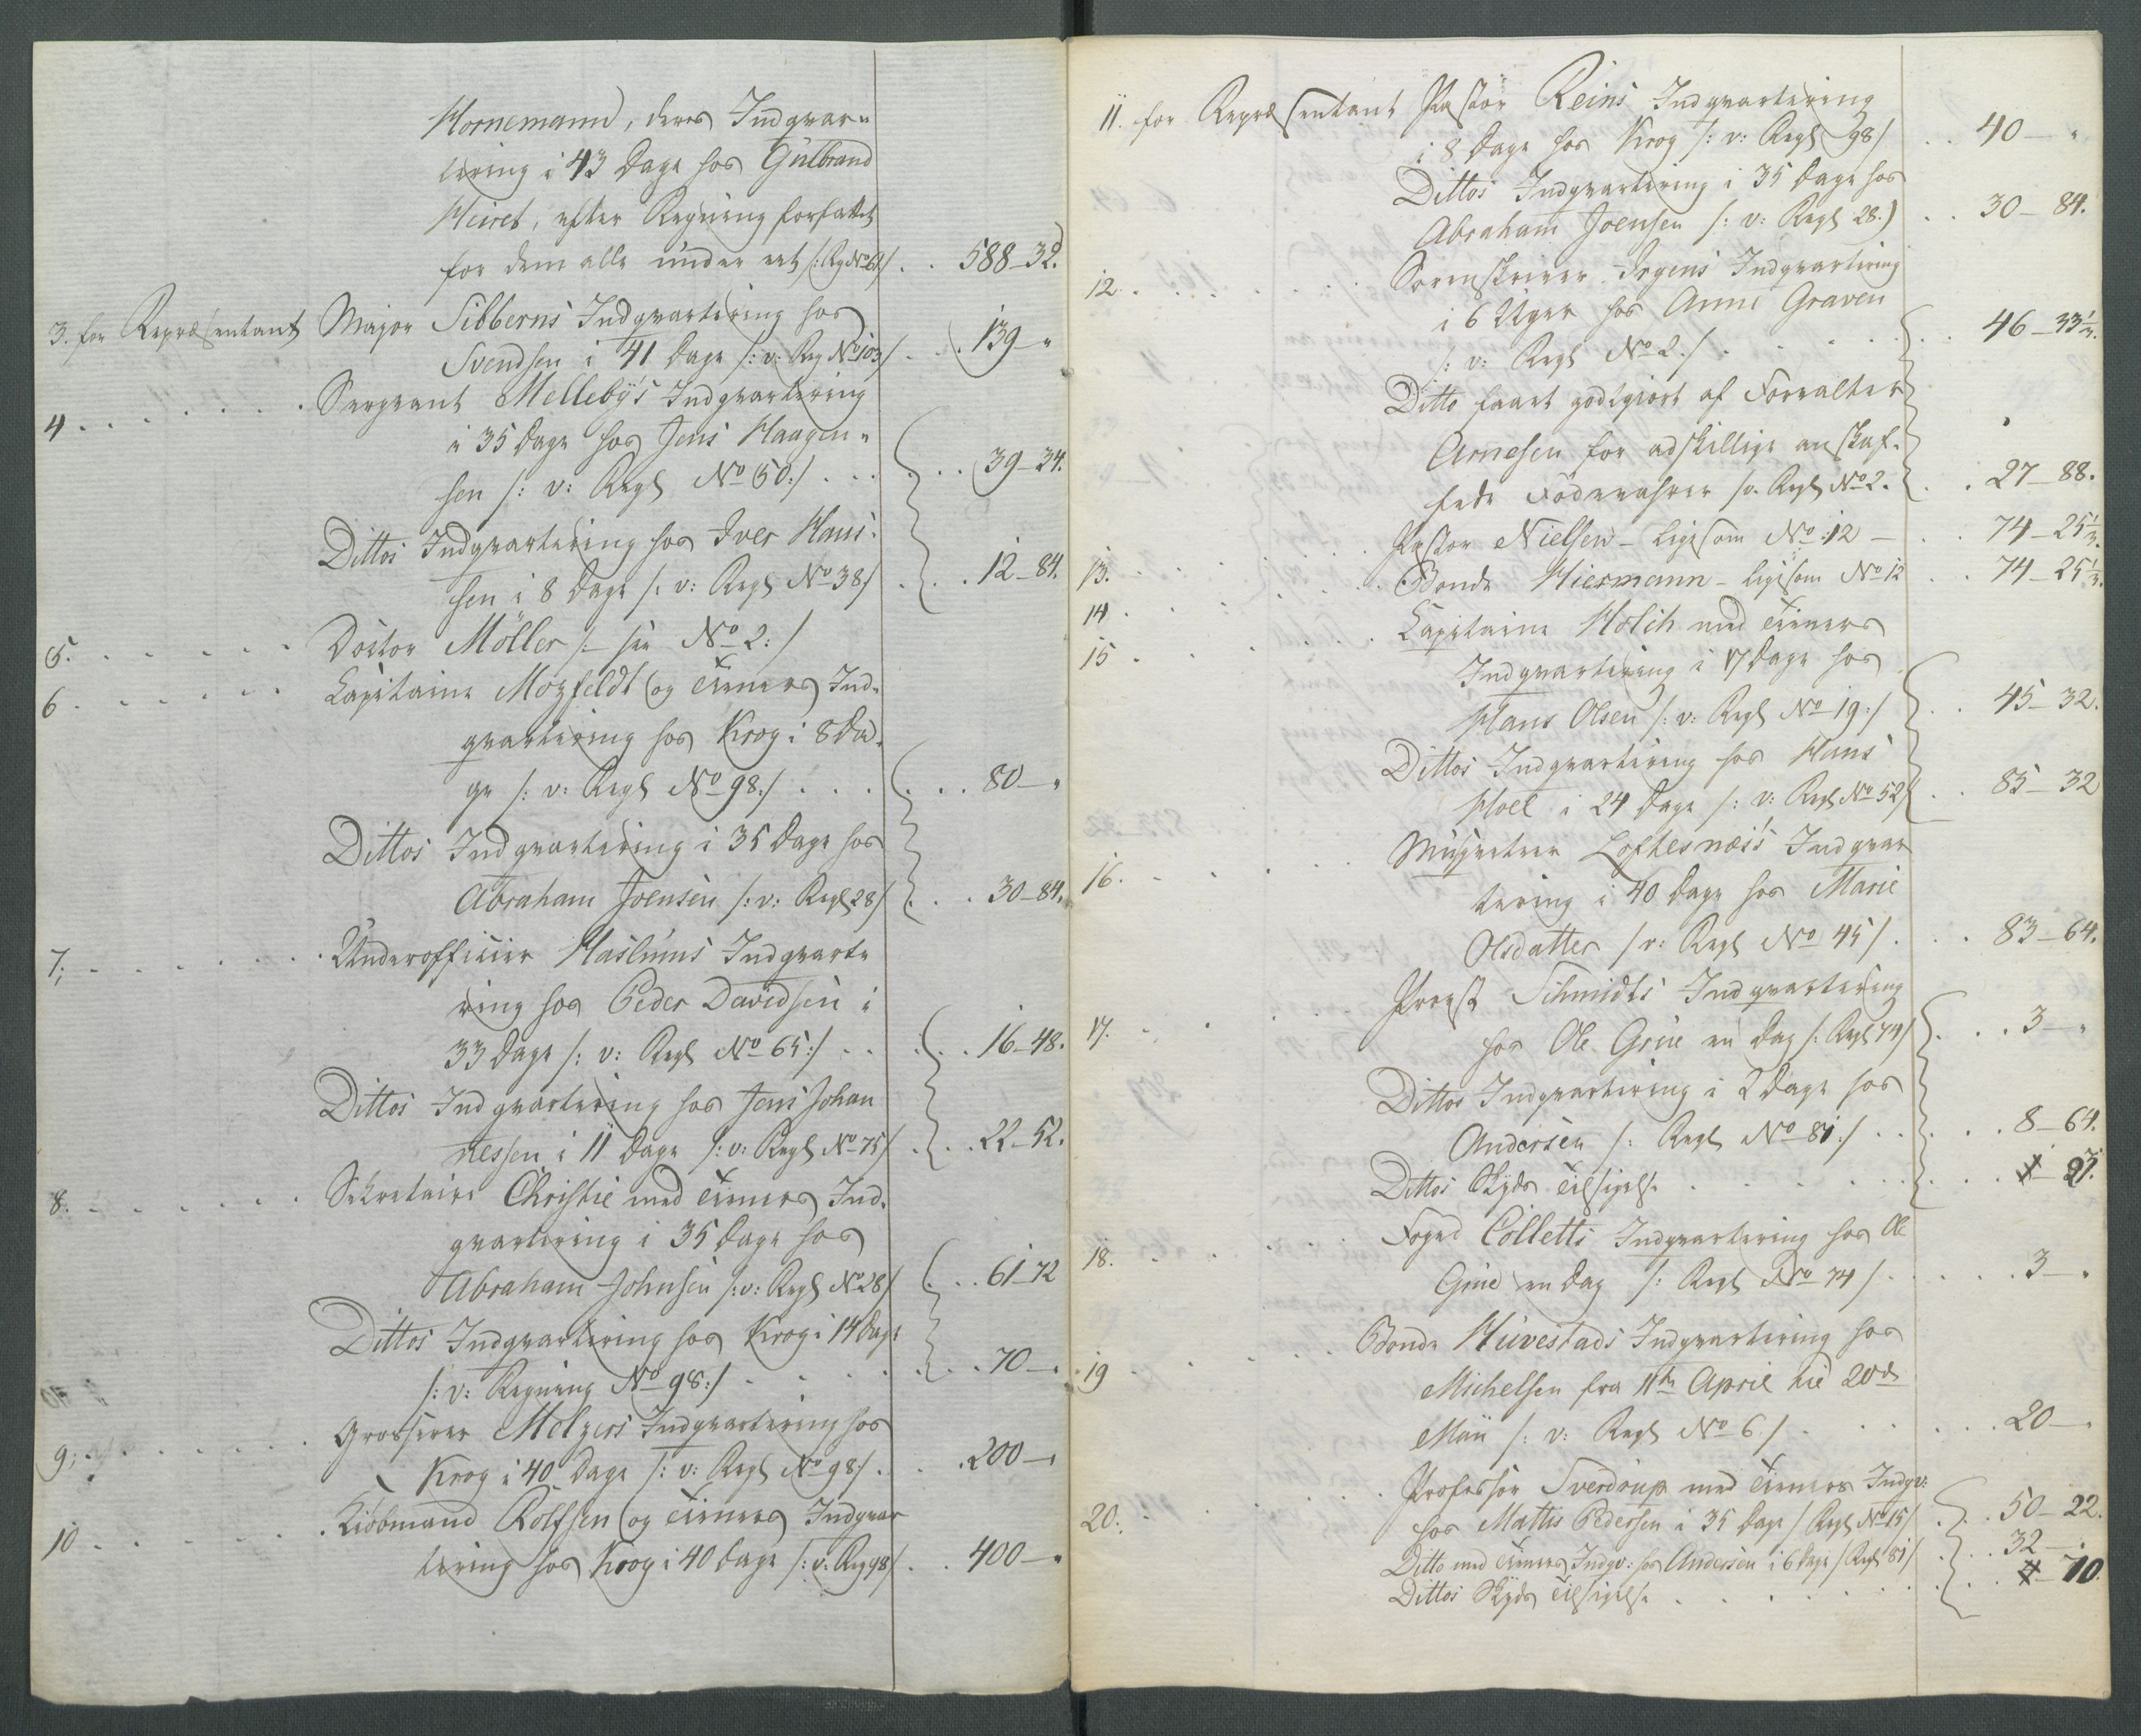 Hornemann, deres Indqvar-
tering i 43 Dage hos Gulbrand
Heiret, efter Regning forfattet
for dem alle under eet /: Rg No 61/ . . 588-32.
3. for Repræsentant Major Sibberns Indqvartering hos
Svendsen i 41 Dage /: v: Reg No 103/ . . 139-"
4 . . . . . . Sergeant Mellebÿs Indqvartering
i 35 Dage hos Jens Haagen-
sen /: v: Regl No 50:/ . . . . . 39-34.
Dittos Indqvartering hos Iver Hans-
sen i 8 Dage /: v: Regl No 38/ . . . 12-84.
5. . . . . . Doctor Möller /- see No 2:/
6 . . . . . . Capitaine Mozfeldt og Tieners Ind-
qvartering hos Krog i 8 Da-
ge /: v: Regl No 98:/ . . . . . . 80-"
Dittos Indqvartering i 35 Dage hos
Abraham Joensen /: v: Regl 28/ . . . 30-84.
7; . . . . . . Underofficier Haslums Indqvarte
ring hos Peder Davidsen i
33 Dage /: v: Regl No 65:/ . . . . 16-48.
Dittos Indqvartering hos Jens Johan
nessen i 11 Dage /: v: Regl No 75/ . . . 22-52.
8. . . . . . Sekretaire Christie med Tieners Ind-
qvartering i 35 Dage hos
Abraham Johnsen /: v: Regl No 28/ . . . 61-72
Dittos Indqvartering hos Krog i 14 Dage
/: v: Regning No 98:/ . . . . . . 70-"
9; . . . . . . Grosserer Meltzers Indqvartering hos
Krog i 40 Dage /: v: Regl No 98/. . . 200-"
10 . . . . . . Kiöbmand Rolfsen og Tieners Indqvar
tering hos Krog i 40 Dage /: v: Reg 98/ . . 400-"
11. for Repræsentant Pastor Reins Indqvartering
i 8 Dage hos Krog /: v: Regl 98/ . . 40-"
Dittos Indqvartering i 35 Dage hos
Abraham Joensen /: v: Regl 28.) . . 30-84.
12 . . . . . . Sorenskriver Irgens Indqvartering
i 6 Uger hos Anne Graven
/: v: Regl No 2./ . . . . . . 46-33 1/2.
Ditto faaet godtgiort af Forvalter
Arnesen for adskillige anskaf-
fede Födevahrer /v. Regl No 2. . . 27-88.
13. . . . . . Pastor Nielsen - ligesom No 12 - . . 74-25 1/2.
14 . . . . . . Bonde Hiermann - ligesom No 12 . . 74-25 1/2.
15 . . . . . . Capitaine Holck med Tieners
Indqvartering i 17 Dage hos
Hans Olsen /: v: Regl No 19:/ . . 45-32.
Dittos Indqvartering hos Hans
Hoel i 24 Dage /: v: Regl No 52/ . . 85-32
16. . . . . . Musqueteer Loftesnæs's Indqvar
tering i 40 Dage hos Marie
Olsdatter /v: Regl No 45/ . . . 83-64.
17. . . . . . Provst Schmidts Indqvartering
hos Ole Grüe en Dag /: Regl 74/ . . . 3-"
Dittos Indqvartering i 2 Dage hos
Andersen /: Regl No 81./ . . . . . 8-64.
Dittos Skyds Tilsigelse . . . . . . . 21.
18. . . . . . Foged Colletts Indqvartering hos Ole
Grüe en Dag /: Regl No 74/ . . . . . 3-"
19 . . . . . . Bonde Huvestads Indqvartering hos
Michelsen fra 11te April til 20de
Maii /: v: Regl No 6./ . . . . . 20-"
20. . . . . . Professor Sverdrup med Tieners Indqv:
hos Mattis Pedersen i 35 Dage / Regl No 15/ . . 50-22.
Ditto med Tieners Indqv: hos Andersen i 6 Dage / Regl 81/ . . 32-"
Dittos Skyds Tilsigelse . . . . . . 70.